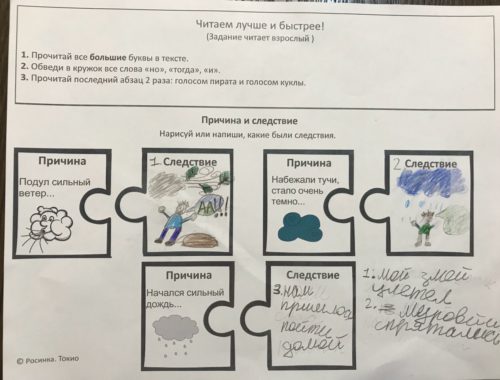 Читаем лучше и быстрее!
(Задание читает взрослый )
1. Прочитай все большие буквы в тексте.
2. Обведи в кружок все слова «но», «тогда», «и».
3. Прочитай последний абзац 2 раза: голосом пирата и голосом куклы.
Причина и следствие
Нарисуй или напиши, какие были следствия.
Причина
Подул сильный
ветер...
1 Следствие
ААА!!!
Причина
Набежали тучи,
стало очень
темно...
2 Следствие
Причина
Начался сильный
дождь...
Следствие
3. нам
пришлось
пойти
домой
1. мой змей
улетел
2. муравьи
спрятались
© Росинка. Токио